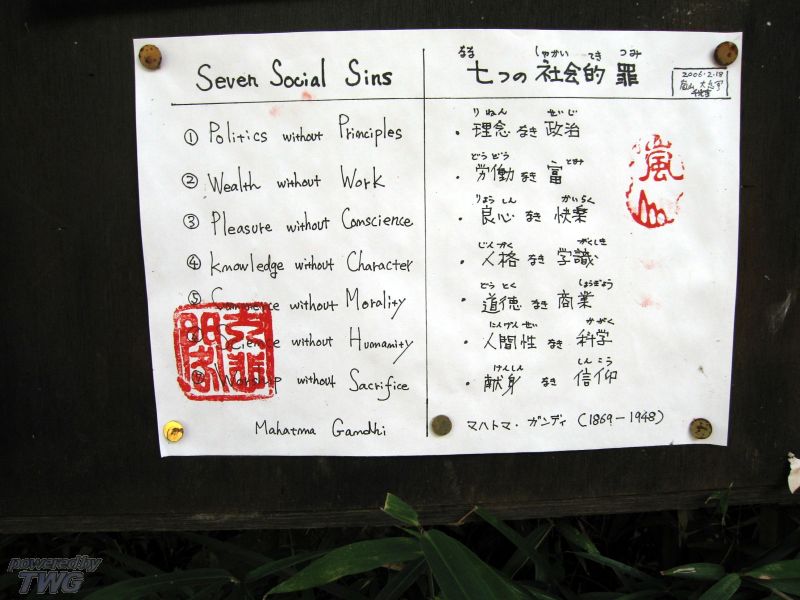 Seven Social Sins
① Politics without Principles
② Wealth without Work
③ Pleasure without Conscience
④ Knowledge without Character
⑤ Commerce without Morality
⑥ Science without Humanity
⑦ Worship without Sacrifice
Mahatma Gandhi
なな しゃかい てき つみ
七つの 社会的 罪
2006.2.18
嵐山 大悲閣
千光寺
りねん せいじ
・理念 なき 政治
ろうどう とみ
・労働 なき 富
りょうしん かいらく
・良心 なき 快楽
じんかく がくしき
・人格 なき 学識
どうとく しょうぎょう
・道徳 なき 商業
にんげんせい かがく
・人間性 なき 科学
けんしん しんこう
・献身 なき 信仰
マハトマ・ガンディ (1869－1948)
嵐
powered by
TWG